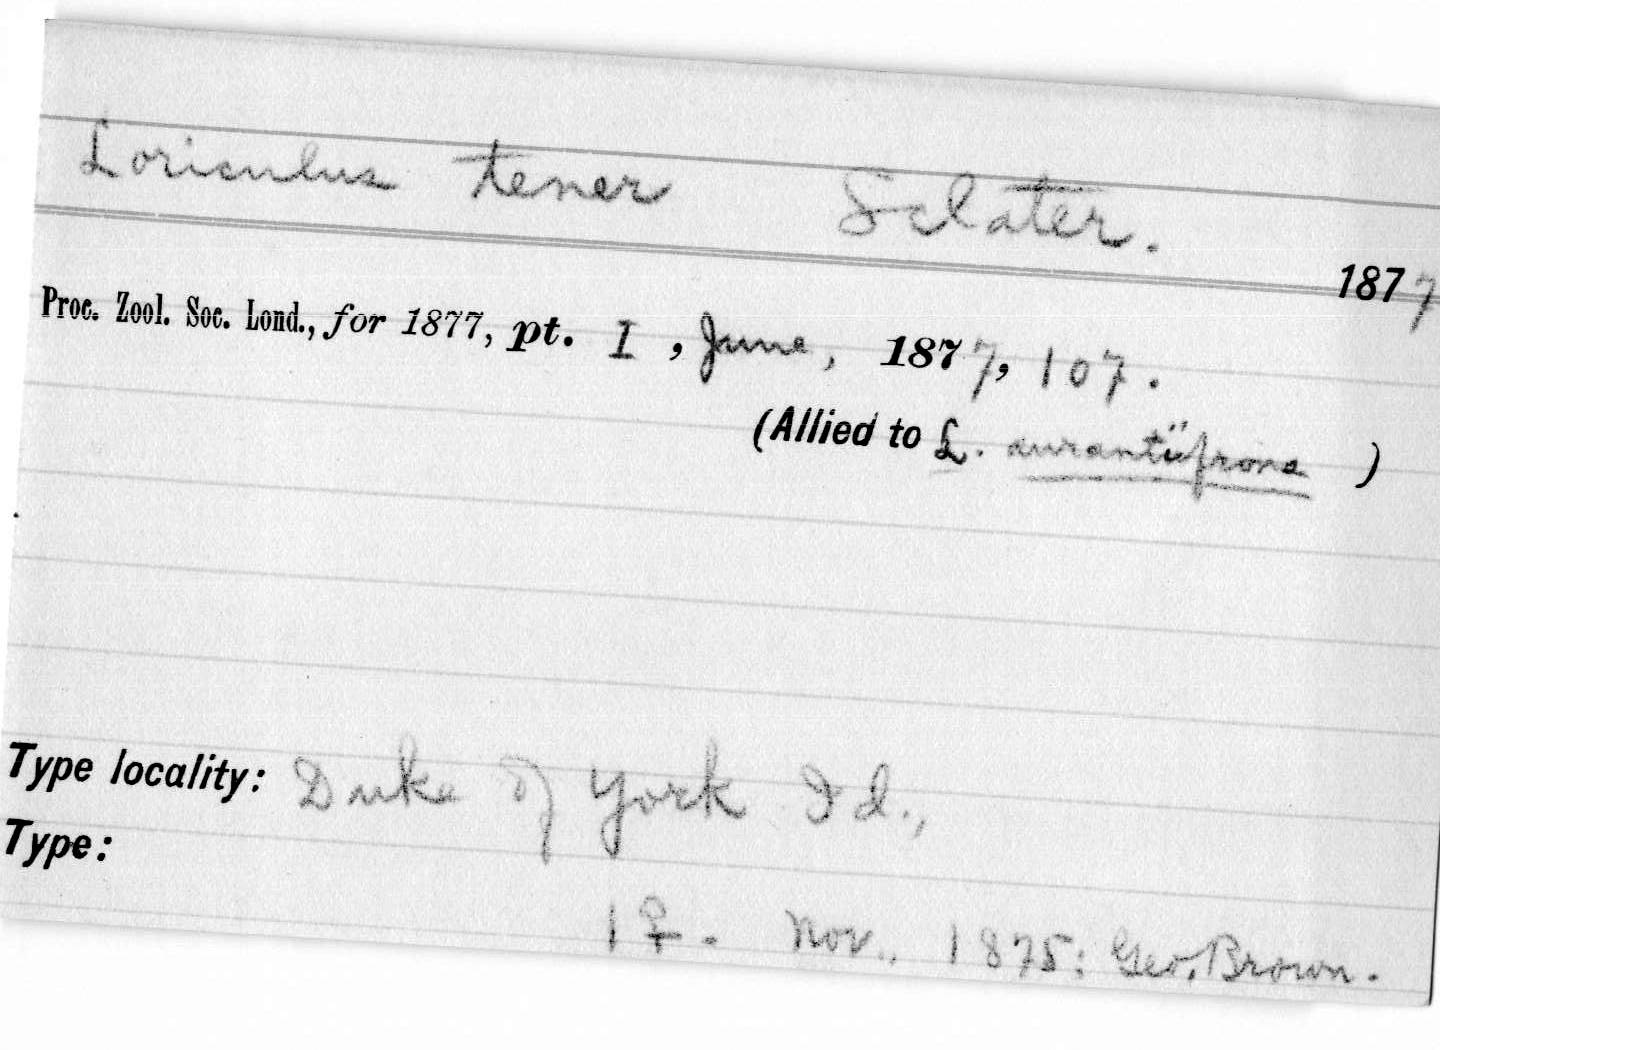 Loriculus tener Sclater.
1877
Proc. Zool. Soc. Lond., for 1877, pt. I, June, 1877, 107.
(Allied to L. aurantiifrons)
Type locality: Duke of York Id.,
Type:
1♀. Nov., 1875: Geo. Brown.